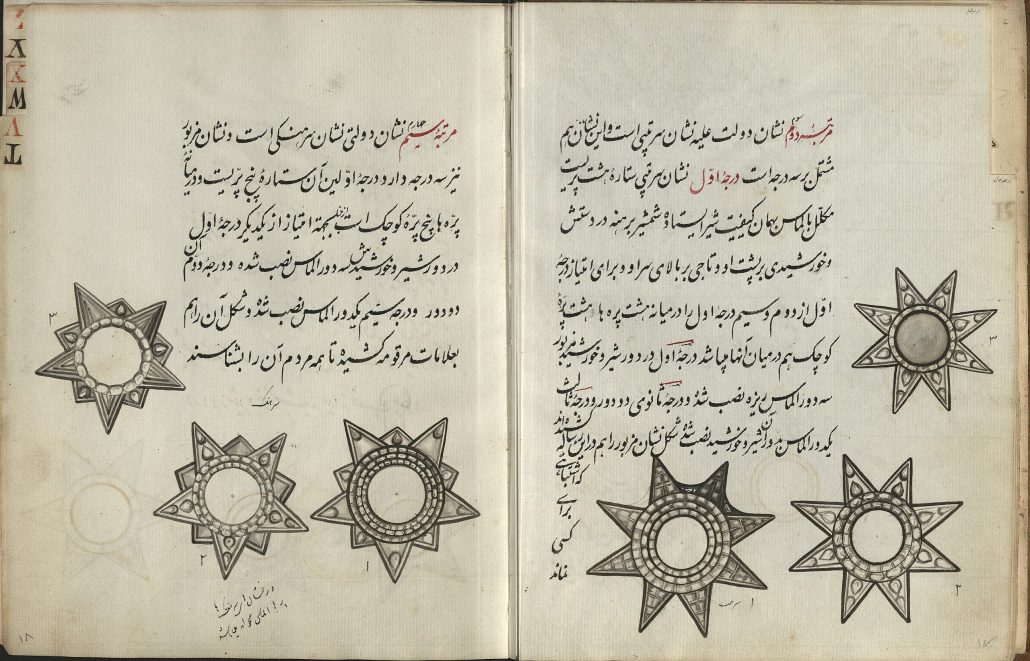 مرتبهٔ دوم نشان دولت علیه نشان سرتیپی است و این نشان هم
مشتمل بر سه درجه است درجهٔ اول نشان سرتیپی ستارهٔ هشت پریست
مکلل بالماس بهمان کیفیت شیر ایستاده شمشیر برهنه در دستش
و خورشیدی بر پشت او و تاجی بر بالای سر او و برای امتیاز درجهٔ
اول از دوم و سیم درجهٔ اول را در میانه هشت پره ها هشت پرهٔ
کوچک هم در میان آنها میباشد درجهٔ اول در دور شیر و خورشید مزبور
سه دور الماس ریزه نصب شدهٔ و درجهٔ ثانوی دو دور و درجهٔ ثالث
یکدور الماس در دور آن شیر و خورشید نصب شدهٔ شکل نشان مزبور را هم در این رساله کشیده‌اند
که اشتباهی
برای
کسی
نماند
۳
۲
۱
سرتیپ
۱۷
مرتبهٔ سیم چهارم نشان دولتی نشان سرهنکی است و نشان مزبور
نیز سه درجه دارد درجهٔ اولین آن ستارهٔ پنج پریست و در میانهٔ
پره ها پنج پرهٔ کوچک است بجهة امتیاز از یکدیکر درجهٔ اول آن
در دور شیر و خورشیدش سه دور الماس نصب شده و درجهٔ دوم
دو دور و درجهٔ سیم یکدور الماس نصب شدهٔ و شکل آن را هم
بعلامات مرقومه کشیدهٔ تا همه مردم آن را بشناسند
سرهنک
۳
۲
۱
۱۸